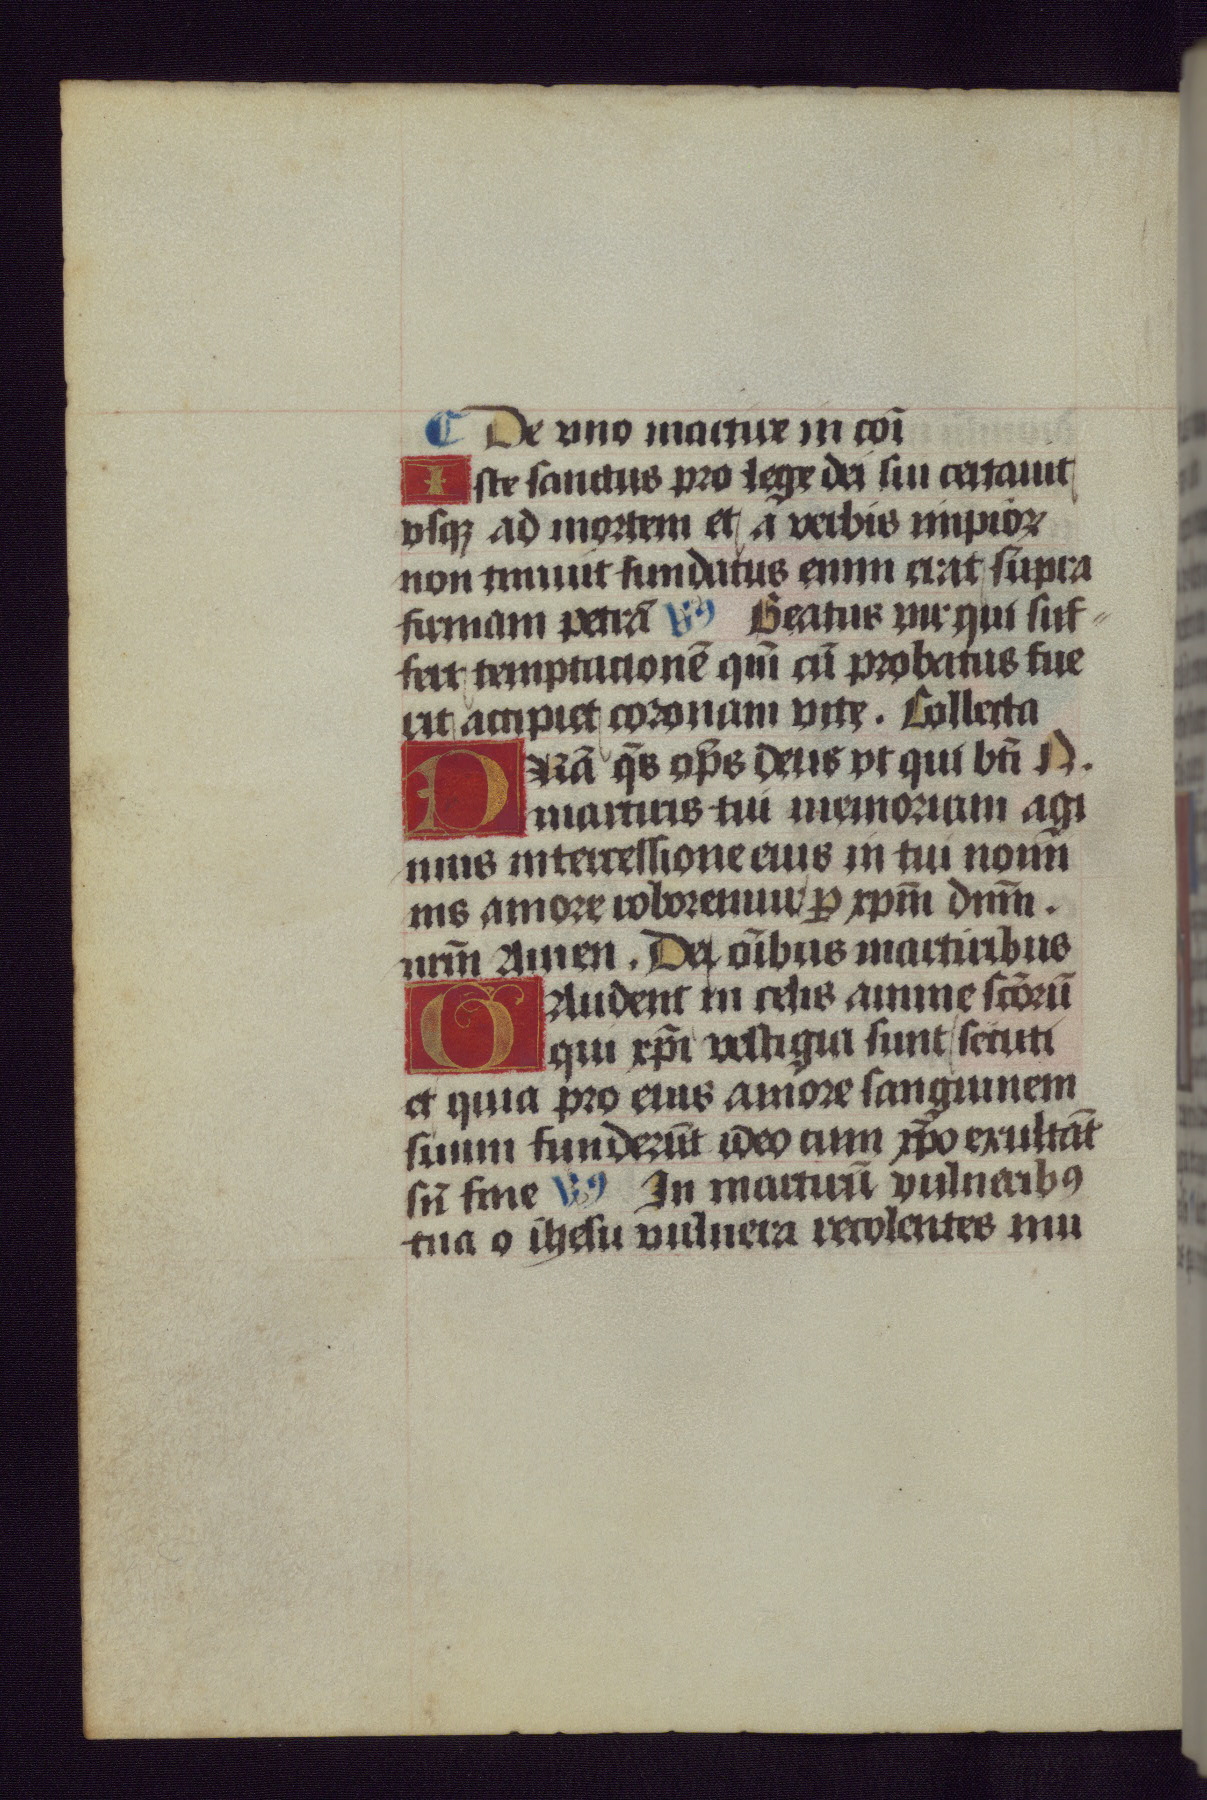 ¶ De vno martire in cōi
Iste sanctus pro lege dei sui certauit
vsqꝫ ad mortem et a verbis impioꝝ
non timuit fundatus enim erat supra
firmam petrā v᷒ Beatus vir qui suf-
fert temptationē qm̄ cū probatus fue
rit accipiet coronam vite. Collecta
PRā q̄s op̄s deus vt qui bt̄i N.
martiris tui memoriam agi
mus intercessione eius in tui nomī
nis amore roboremur ꝑ xpm̄ dnm̄.
nrm̄ Amen. De oībus martiribus
GAudent in celis anime sctōrū
qui xp̄i vestigia sunt secuti
et quia pro eius amore sanguinem
suum fuderūt ideo cum xp̄o exultāt
sn̄ fine v᷒ In martirū vulneribꝰ
tua o ihesu vulnera recolentes mu